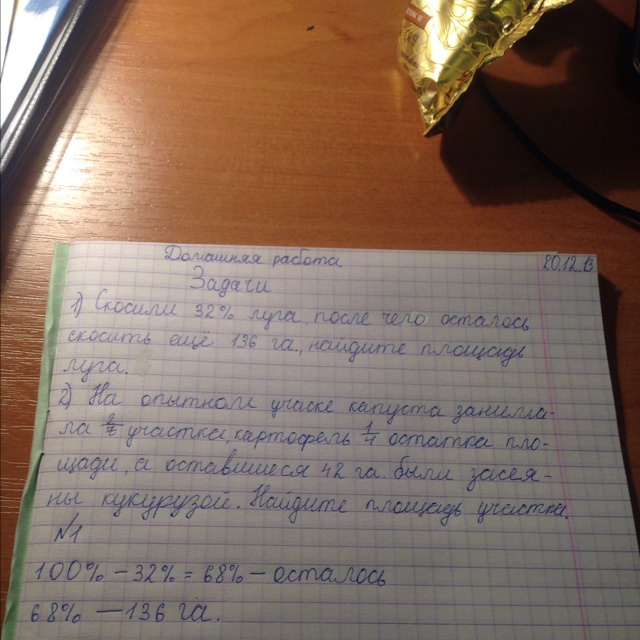 Домашняя работа
20.12.13
Задачи
1) Скосили 32% луга, после чего осталось
скосить ещё 136 га, найдите площадь
луга.
2) На опытном учаске капуста занима-
ла участка, картофель 1/4 остатка пло-
щади, а оставшиеся 42 га были засея-
ны кукурузой. Найдите площадь участка.
№1
100% - 32% = 68% - осталось
68% — 136 га.